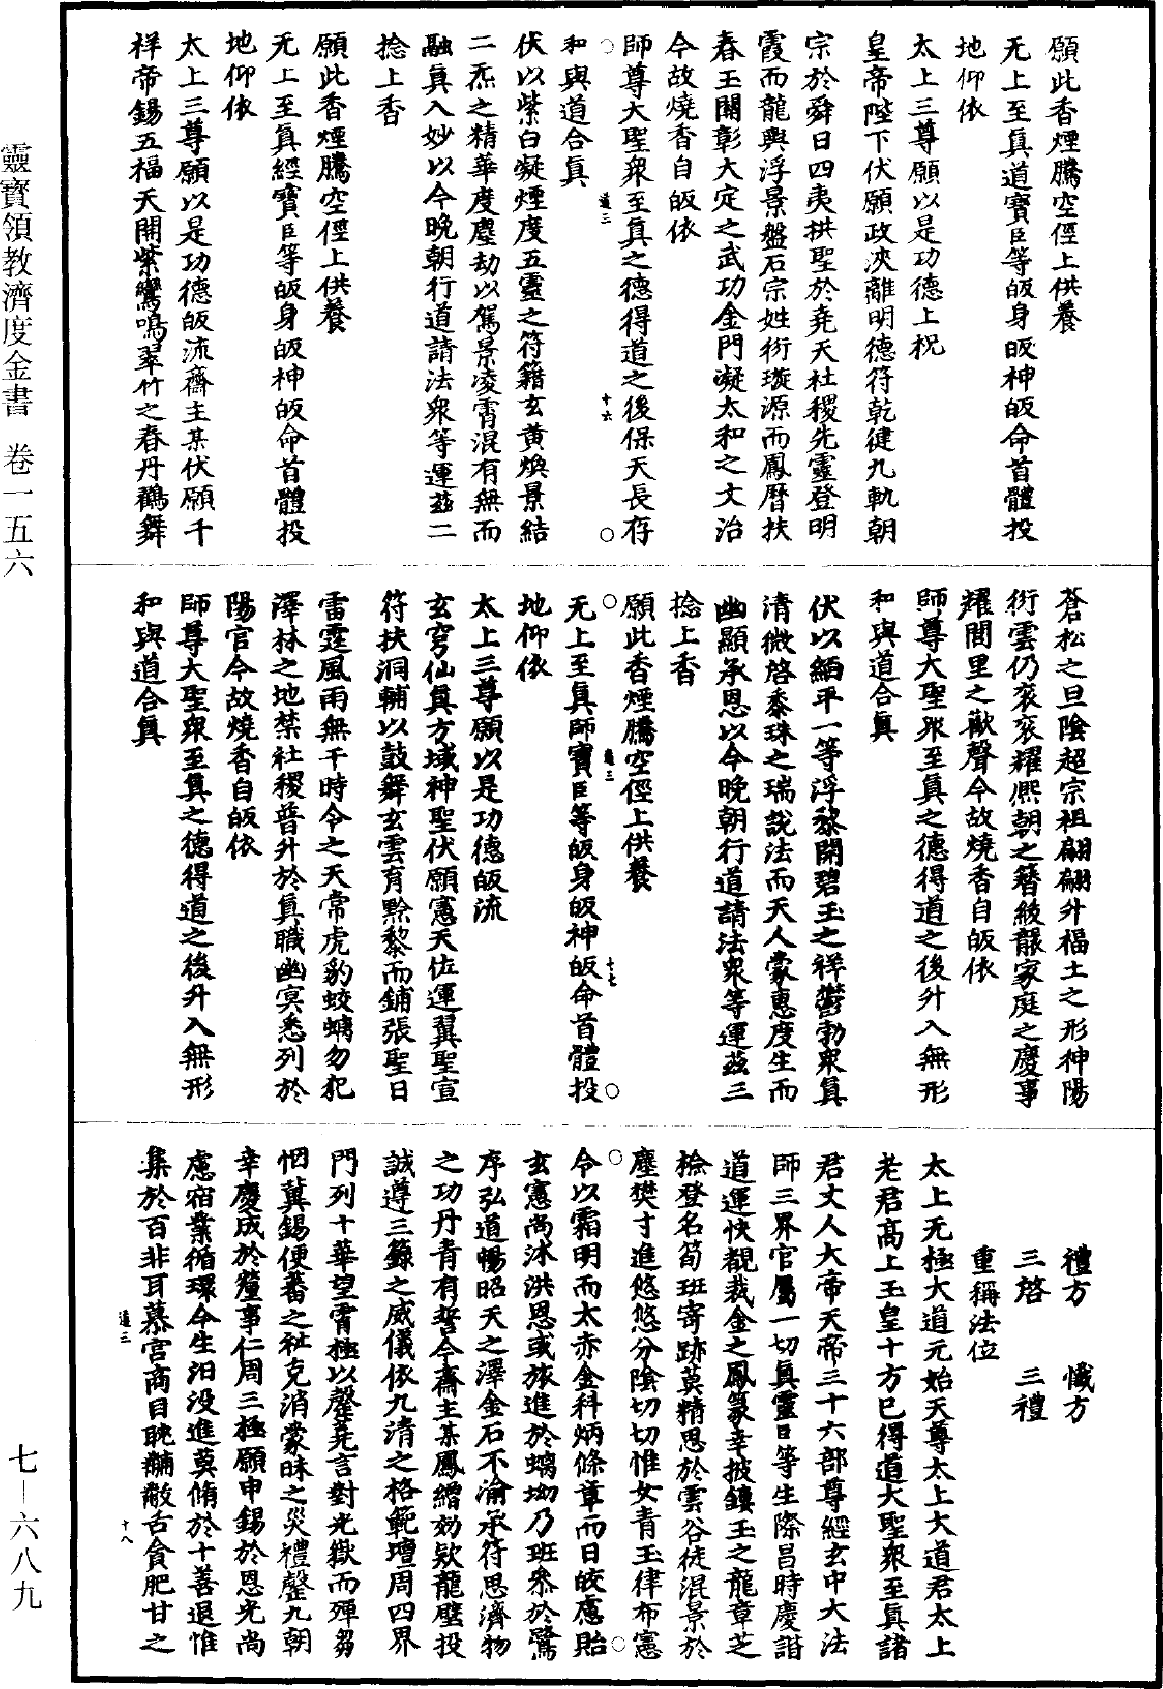 願此香煙騰空徑上供養
无上至真道寶臣等皈身皈神皈命首體投
地仰依
太上三尊願以是功德上祝
皇帝陛下伏願政浹離明德符乾健九軌朝
宗於舜日四夷拱聖於堯天社稷先靈登明
霞而龍輿浮景盤石宗姓衍璇源而鳳曆扶
春玉關彰大定之武功金門凝太和之文治
今故燒香自皈依
師尊大聖眾至真之德得道之後保天長存
和與道合真
伏以紫白凝煙度五靈之符籍玄黃煥景結
二炁之精華度塵劫以駕景凌霄混有無而
融真入妙以今晚朝行道請法眾等運茲二
捻上香
願此香煙騰空徑上供養
无上至真經寶臣等皈身皈神皈命首體投
地仰依
太上三尊願以是功德皈流齋主某伏願千
祥帝錫五福天開紫鸞鳴翠竹之春丹鵷舞
蒼松之旦陰超宗祖翩翩升福土之形神陽
衍雲仍衮衮耀熙朝之簪紱靄家庭之慶事
耀閭里之歡聲今故燒香自皈依
師尊大聖眾至真之德得道之後升入無形
和與道合真
伏以緬平一等浮黎開碧玉之祥鬱勃眾真
清微啓黍珠之瑞說法而天人蒙惠度生而
幽顯承恩以今晚朝行道請法眾等運茲三
捻上香
願此香煙騰空徑上供養
无上至真師寶臣等皈身皈神皈命首體投
地仰依
太上三尊願以是功德皈流
玄穹仙真方域神聖伏願憲天佐運翼聖宣
符扶洞輔以鼓舞玄雲育黔黎而鋪張聖日
雷霆風雨無干時令之天常虎豹蛟螭勿犯
澤林之地禁社稷普升於真職幽冥悉列於
陽官今故燒香自皈依
師尊大聖眾至真之德得道之後升入無形
和與道合真
禮方　懺方
三啓　三禮
重稱法位
太上无極大道元始天尊太上大道君太上
老君高上玉皇十方已得道大聖眾至真諸
君丈人大帝天帝三十六部尊經玄中大法
師三界官屬一切真靈臣等生際昌時慶諧
道運快覩裁金之鳳篆幸披鏤玉之龍章芝
檢登名筍班寄跡莫精思於雲谷徒混景於
塵樊寸進悠悠分陰切切惟女青玉律布憲
令以霜明而太赤金科炳條章而日皎應貽
玄憲尚沐洪恩或旅進於螭坳乃班叅於鷺
序弘道暢昭天之澤金石不渝承符思濟物
之功丹青有誓今齋主某鳳繒効欵龍壁投
誠遵三籙之威儀依九清之格範壇周四界
門列十華望霄極以罄堯言對光嶽而殫芻
悃冀錫便蕃之祉克消蒙昧之災禮罄九朝
幸慶成於釐事仁周三極願申錫於恩光尚
慮宿業循環今生汨没進莫脩於十善退惟
集於百非耳慕宮商目眺黼黻舌貪肥甘之
道三　十六
道三　十七
道三　十八
靈寶領教濟度金書　卷一五六
七—六八九